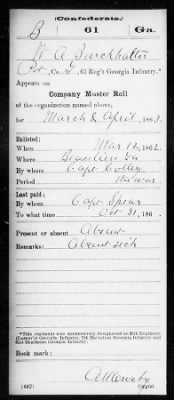 (Confederate.)
B 61 Ga.
W A Burckhalter
Pvt, Co. , 61 Reg't Georgia Infantry.*
Appears on
Company Muster Roll
of the organization named above,
for March & April, 1863.
Enlisted:
When Mar 12, 1862.
Where Ga
By whom Capt
Period the war
Last paid:
By whom Capt Spear
To what time Oct 31, 186 .
Present or absent Absent
Remarks: Absent sick
*This regiment was successively designated as 61st Regiment
Georgia Infantry.
Book mark:
(642) Copyist.